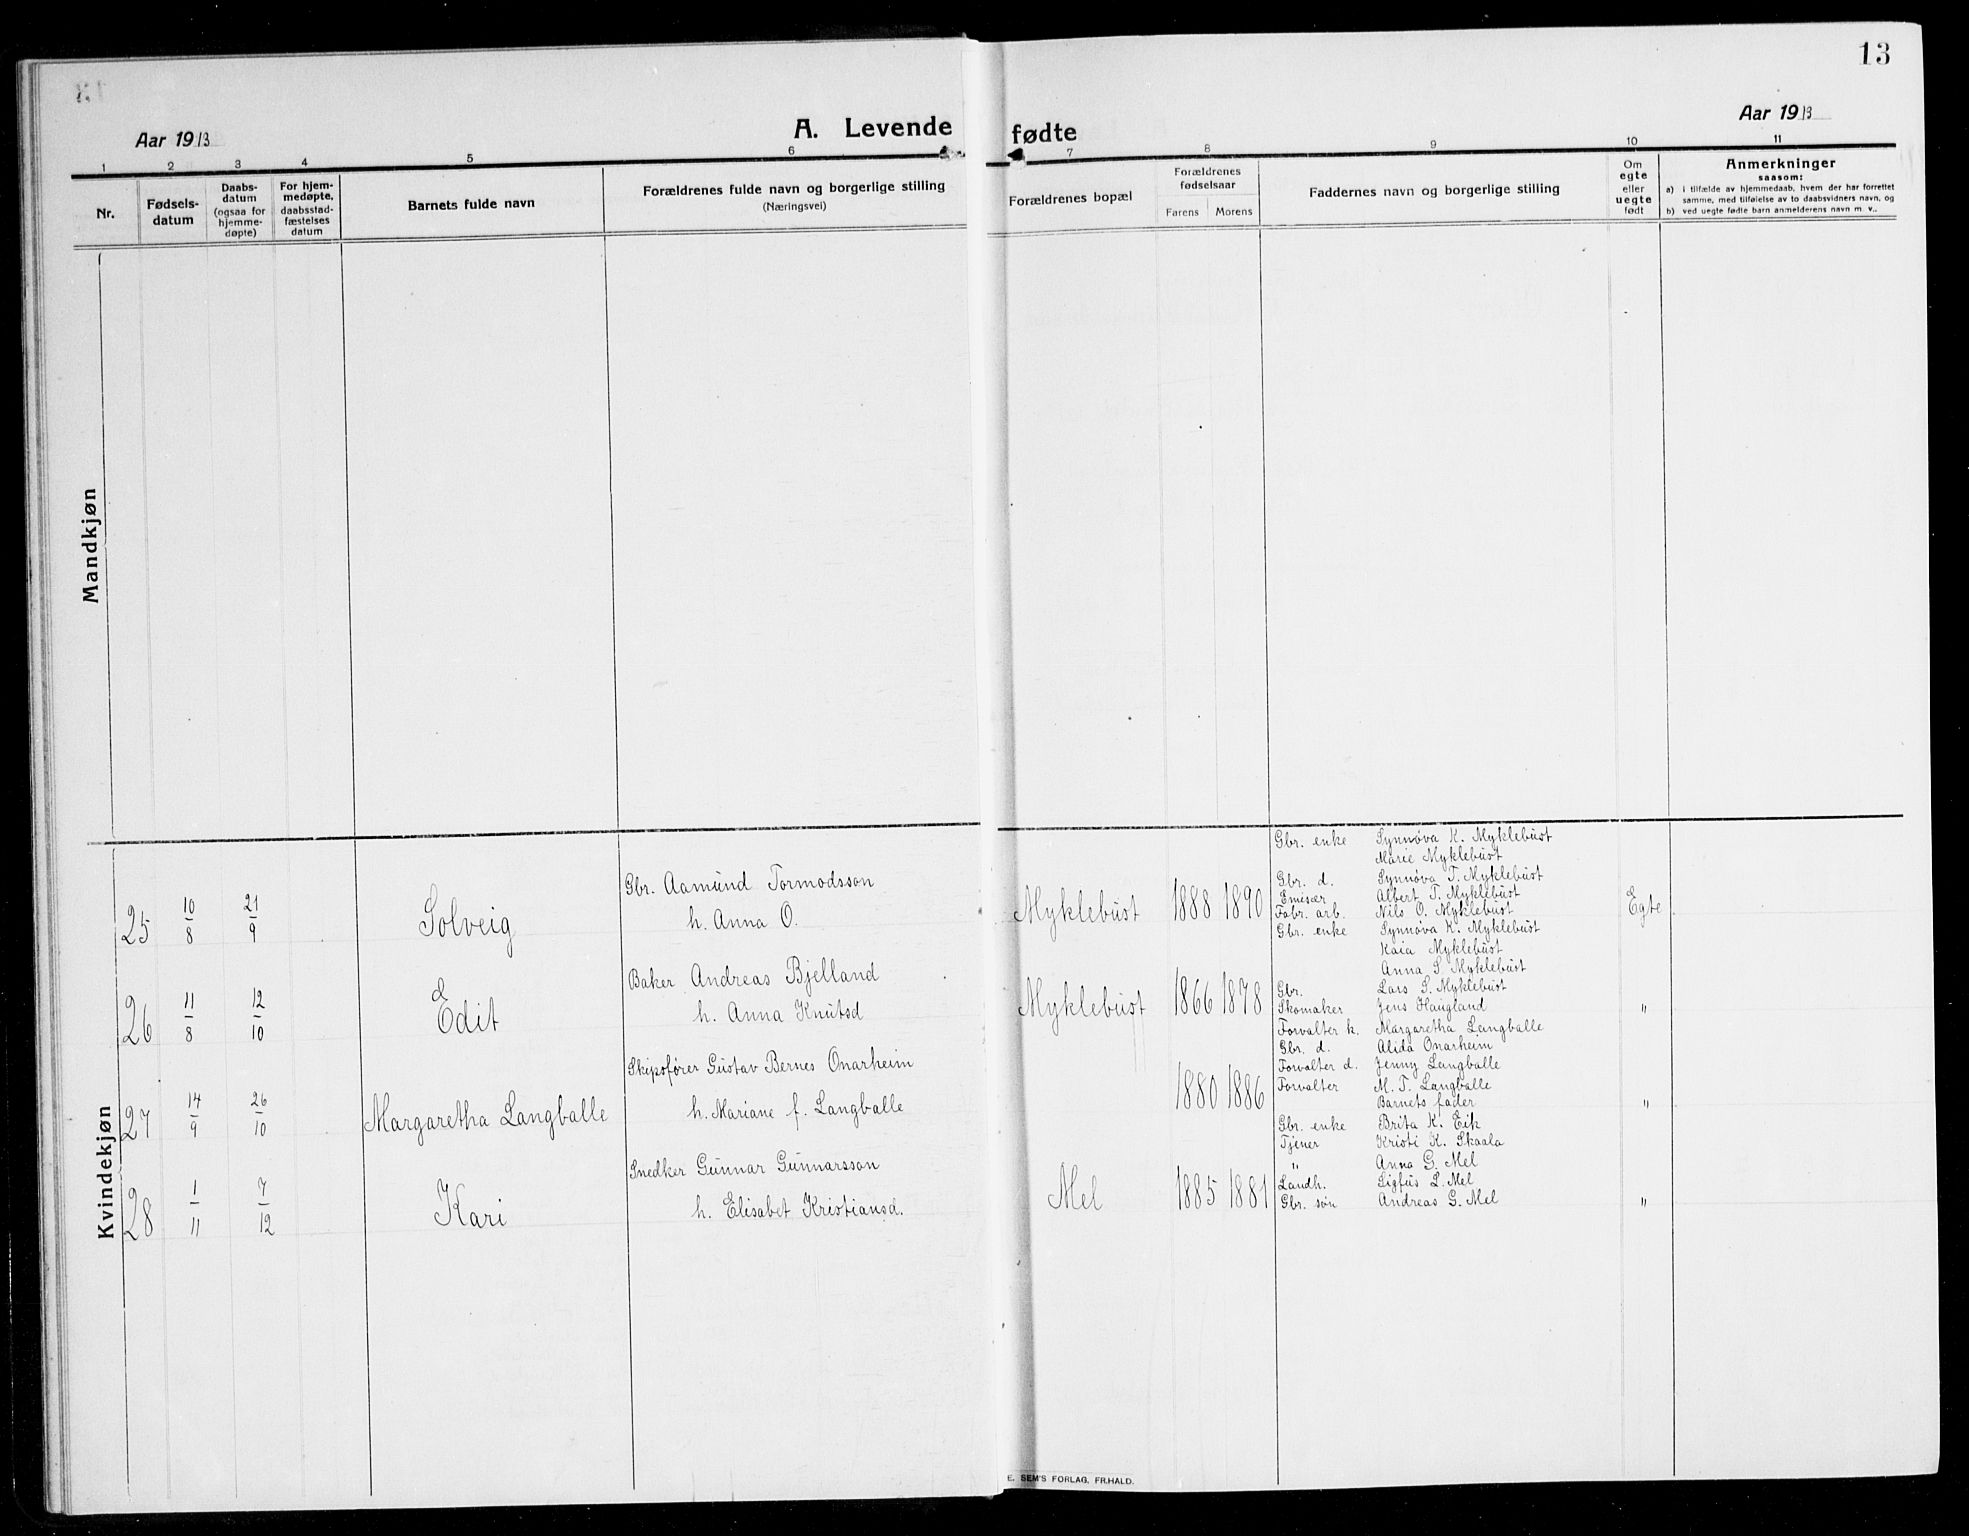 13
Aar 1913
A. Levende fødte
Aar 1913
1 2 3 4 5 6 7 8 9 10 11
Nr.
Fødsels-
datum
Daabs-
datum
(ogsaa for
hjemme-
døpte)
For hjem-
medøpte,
daabsstad-
fæstelses
datum
Barnets fulde navn
Forældrenes fulde navn og borgerlige stilling
(Næringsvei)
Forældrenes bopæl
Forældrenes
fødselsaar
Farens Morens
Faddernes navn og borgerlige stilling
Om
egte
eller
uegte
født
Anmerkninger
saasom:
a) i tilfælde av hjemmedaab, hvem der har forrettet
samme, med tilføielse av to daabsvidners navn, og
b) ved uegte fødte barn anmelderens navn m. v..
Mandkjøn
Kvindekjøn
25 10/8 21/9 Solveig
Gbr. Aamund Tormodsson
h. Anna O.
Myklebust 1888 1890
Gbr. enke Synnøva K. Myklebust
Marie Myklebust
Gbr. d. Synnøva T. Myklebust
Emisær Albert T. Myklebust
Fabr. arb. Nils O. Myklebust
Egte
26 11/8 12/10 Edit
Baker Andreas Bjelland
h. Anna Knutsd
Myklebust 1866 1878
Gbr. enke Synnøva K. Myklebust
Kaia Myklebust
Anna S. Myklebust
Gbr. Lars S. Myklebust
Skomaker Jens Haugland
"
27 14/9 26/10 Margaretha Langballe
Skipsfører Gustav Bernes Onarheim
h. Mariane f. Langballe
1880 1886
Forvalter k. Margaretha Langballe
Gbr. d. Alida Onarheim
Forvalter d. Jenny Langballe
Forvalter M. T. Langballe
Barnets fader
"
28 1/11 7/12 Kari
Snedker Gunnar Gunnarsson
h. Elisabet Kristiansd.
Mel 1885 1881
Gbr. enke Brita K. Eik
Tjener Kristi K. Skaala
" Anna G. Mel
Landh. Sigfus L. Mel
Gbr. søn Andreas G. Mel
"
E. SEM'S FORLAG, FR.HALD.